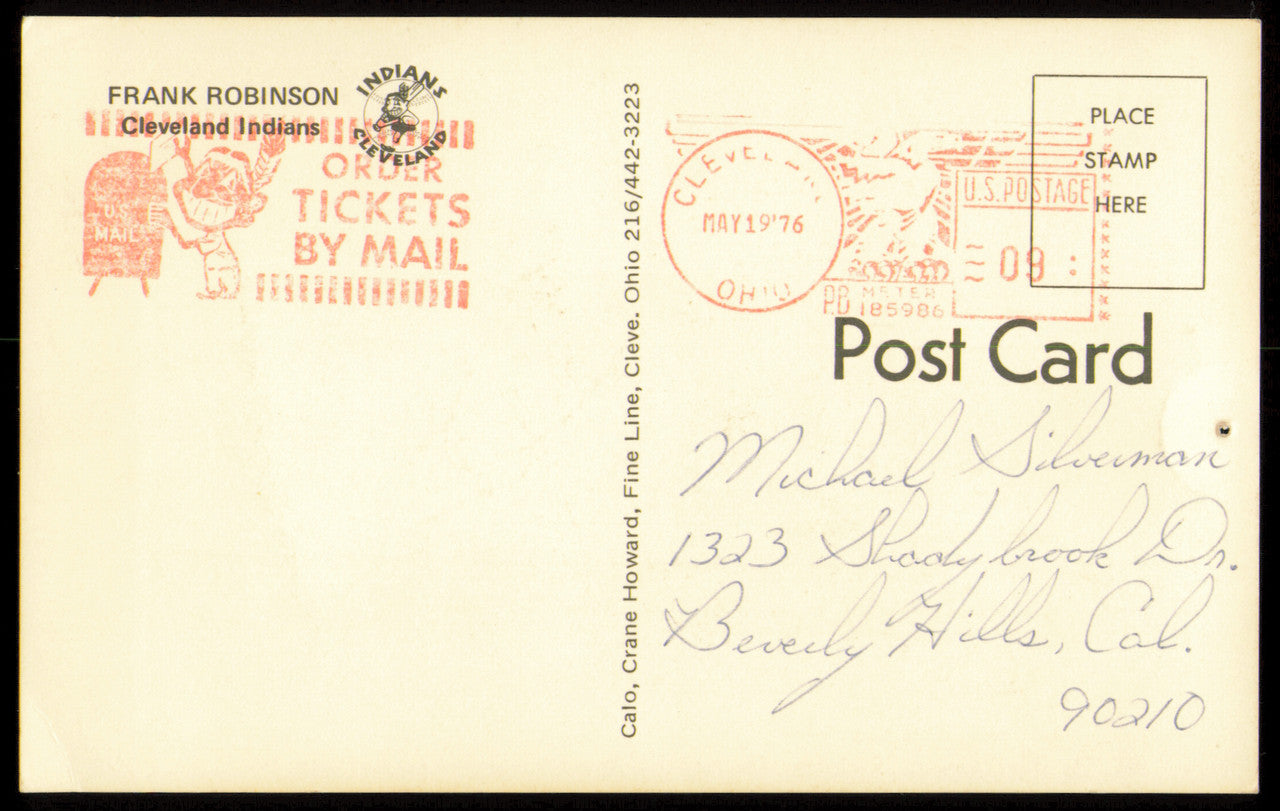 FRANK ROBINSON
Cleveland Indians
INDIANS
CLEVELAND
U.S.
MAIL
ORDER
TICKETS
BY MAIL
Calo, Crane Howard, Fine Line, Cleve. Ohio 216/442-3223
CLEVEL
MAY19'76
OHIO
U.S. POSTAGE
09
PB METER
185986
PLACE
STAMP
HERE
Post Card
Michael Silverman
1323 Shadybrook Dr.
Beverly Hills, Cal.
90210